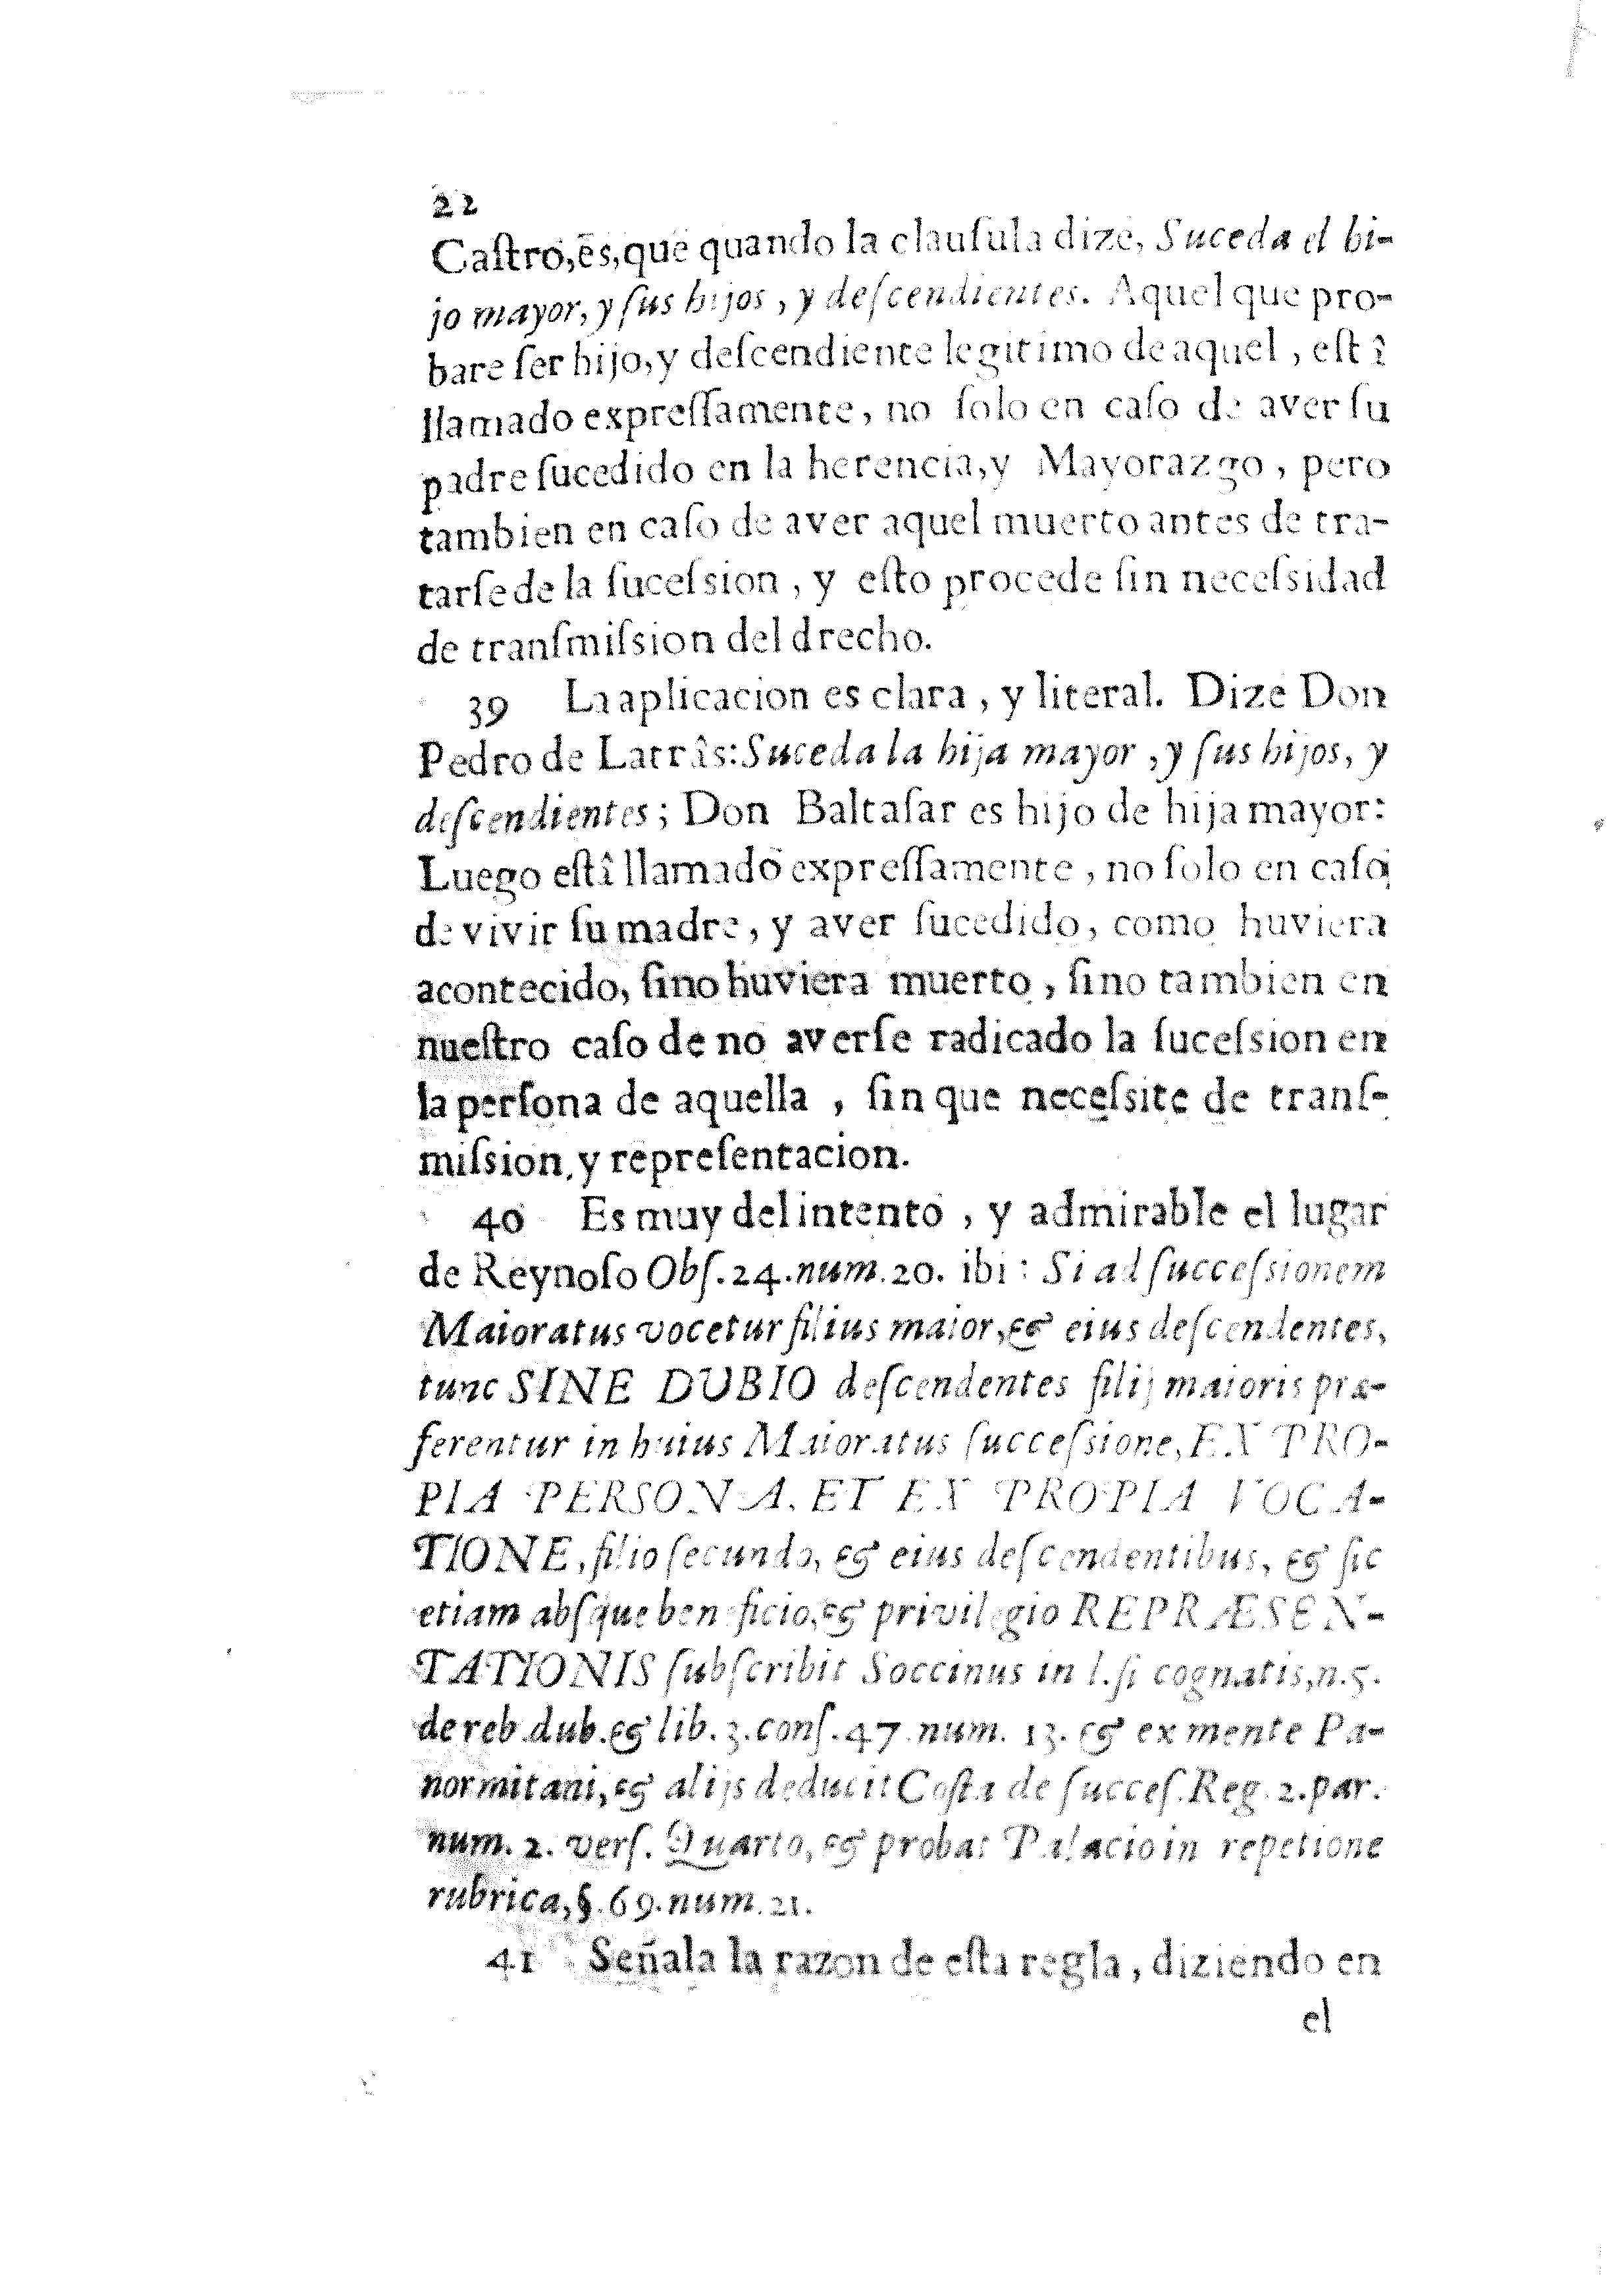 22
Caſtro, es, que quando la clauſula dize, Suceda el hi-
jo mayor, y ſus hijos, y deſcendientes. Aquel que pro-
bare ſer hijo, y deſcendiente legitimo de aquel, eſtâ
llamado expreſſamente, no ſolo en caſo de aver ſu
padre ſucedido en la herencia, y Mayorazgo, pero
tambien en caſo de aver aquel muerto antes de tra-
tarſe de la ſuceſsion, y eſto procede ſin neceſsidad
de tranſmiſsion del drecho.
39 La aplicacion es clara, y literal. Dize Don
Pedro de Latrâs: Suceda la hija mayor, y ſus hijos, y
deſcendientes; Don Baltaſar es hijo de hija mayor:
Luego eſtâ llamado expreſſamente, no ſolo en caſo
de vivir ſu madre, y aver ſucedido, como huviera
acontecido, ſino huviera muerto, ſino tambien en
nueſtro caſo de no averſe radicado la ſuceſsion en
la perſona de aquella, ſin que neceſsite de tranſ-
miſsion, y repreſentacion.
40 Es muy del intento, y admirable el lugar
de Reynoſo Obſ. 24. num. 20. ibi: Si ad ſucceſsionem
Maioratus vocetur filius maior, & eius deſcendentes,
tunc SINE DUBIO deſcendentes filij maioris præ-
ferentur in huius Maioratus ſucceſsione, EX PRO-
PIA PERSONA, ET EX PROPIA VOCA-
TIONE, filio ſecundo, & eius deſcendentibus, & ſic
etiam abſque beneficio, & privilegio REPRÆSEN-
TATIONIS ſubſcribit Soccinus in l. ſi cognatis, n. 5.
de reb. dub. & lib. 3. conſ. 47. num. 13. & ex mente Pa-
normitani, & alijs deducit Coſta de ſucceſ. Reg. 2. par.
num. 2. verſ. Quarto, & probat Palacio in repetione
rubrica, §. 69. num. 21.
41 Señala la razon de eſta regla, diziendo en
el